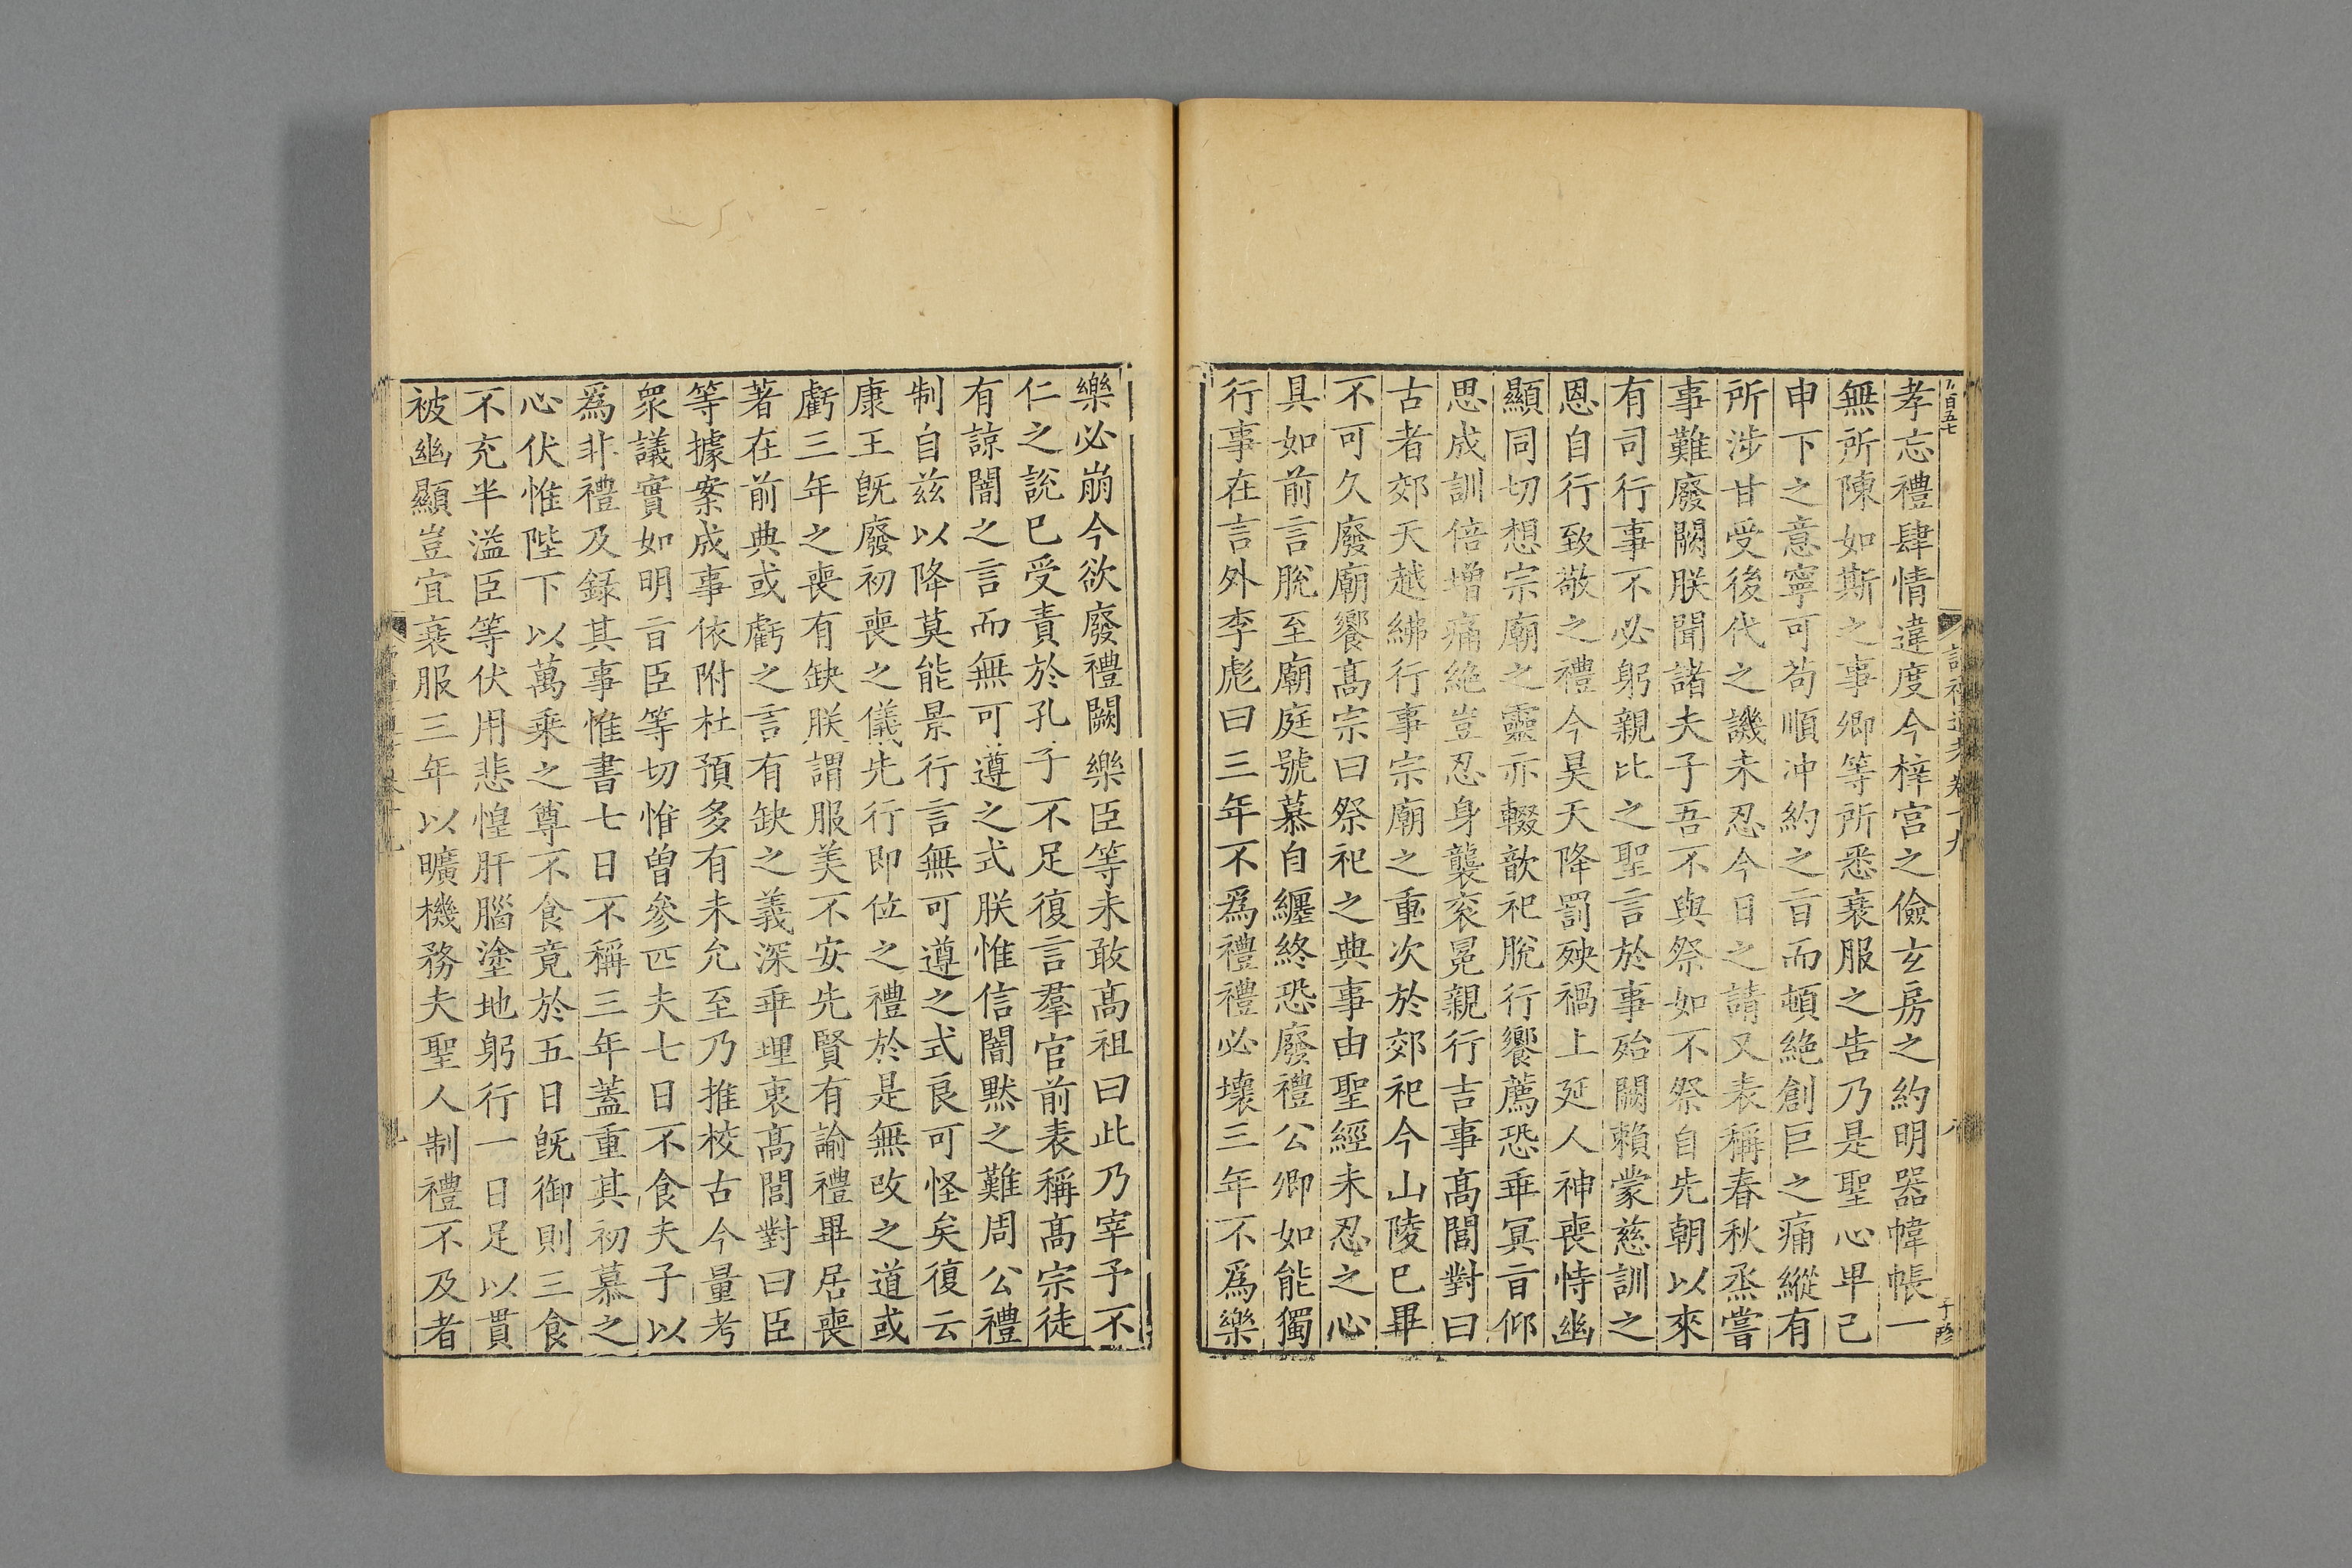 孝忘禮肆情違度今梓宮之儉玄房之約明器幃帳一
無所陳如斯之事卿等所悉衰服之告乃是聖心卑己
申下之意寧可苟順冲約之㫖而頓絶創巨之痛縱有
所涉甘受後代之譏未忍今日之請又表稱春秋烝嘗
事難廢闕朕聞諸夫子吾不與祭如不祭自先朝以來
有司行事不必躬親比之聖言於事殆闕賴蒙慈訓之
恩自行致敬之禮今昊天降罰殃禍上延人神喪恃幽
顯同切想宗廟之靈亦輟歆祀脫行饗薦恐乖冥㫖仰
思成訓倍增痛絶豈忍身襲衮冕親行吉事髙閭對曰
古者郊天越紼行事宗廟之重次於郊祀今山陵已畢
不可久廢廟饗髙宗曰祭祀之典事由聖經未忍之心
具如前言脫至廟庭號慕自纏終恐廢禮公卿如能獨
行事在言外李彪曰三年不爲禮禮必壞三年不爲樂
樂必崩今欲廢禮闕樂臣等未敢髙祖曰此乃宰予不
仁之說已受責於孔子不足復言羣官前表稱髙宗徒
有諒闇之言而無可遵之式朕惟信闇黙之難周公禮
制自兹以降莫能景行言無可遵之式良可怪矣復云
康王旣廢初喪之儀先行即位之禮於是無改之道或
虧三年之喪有缺朕謂服美不安先賢有諭禮畢居喪
著在前典或虧之言有缺之義深乖理衷髙閭對曰臣
等據案成事依附杜預多有未允至乃推校古今量考
衆議實如明㫖臣等切惟曽參匹夫七日不食夫子以
爲非禮及録其事惟書七日不稱三年蓋重其初慕之
心伏惟陛下以萬乘之尊不食竟於五日旣御則三食
不充半溢臣等伏用悲惶肝腦塗地躬行一日足以貫
被幽顯豈宜衰服三年以曠機務夫聖人制禮不及者